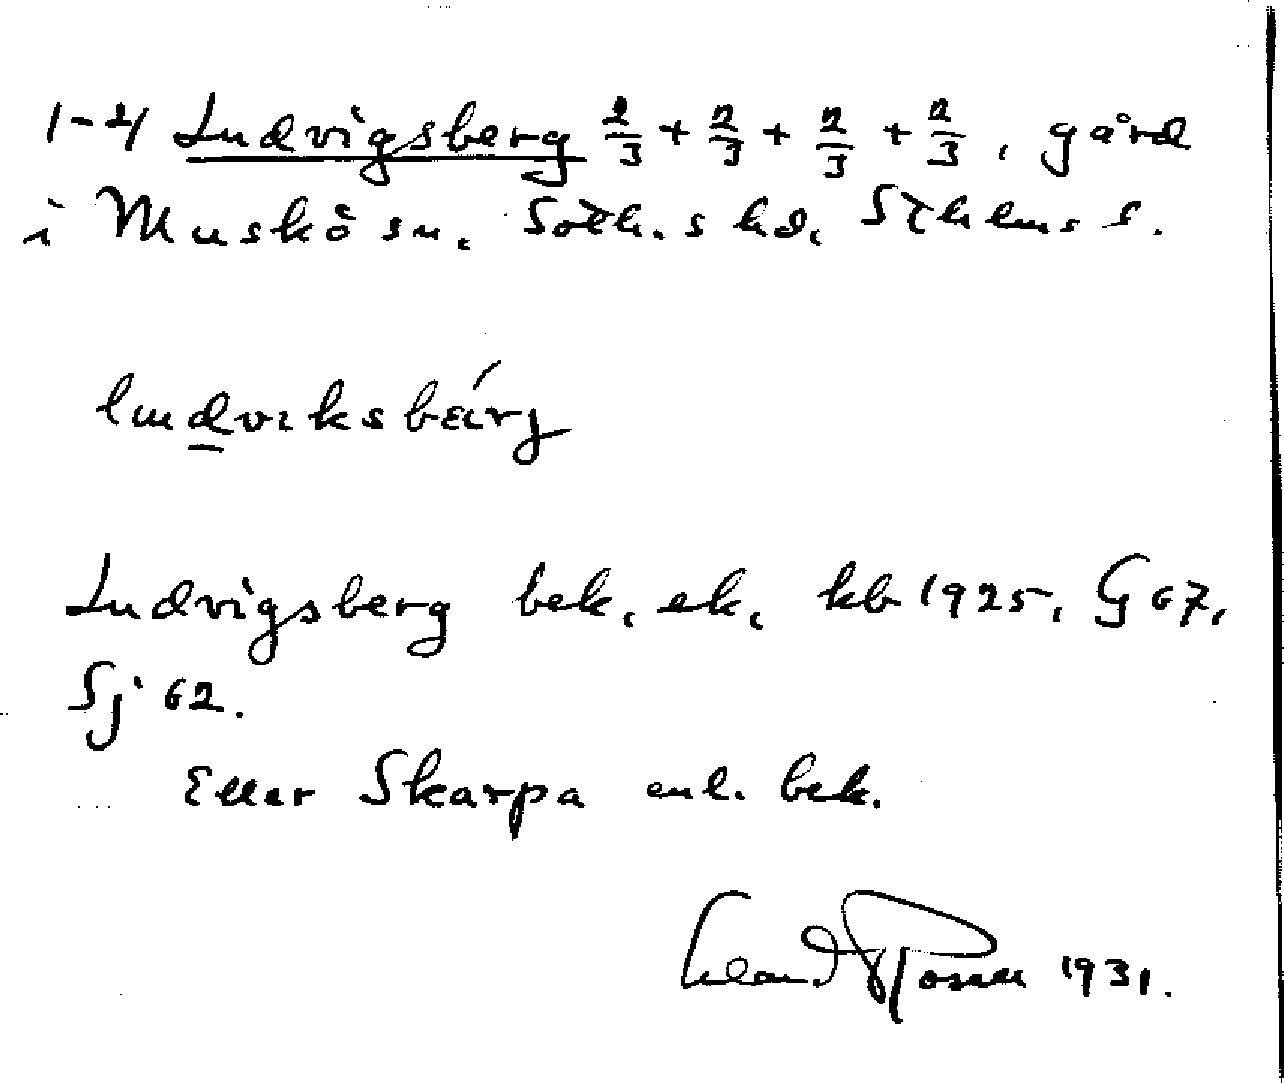 1-4 Ludvigsberg 2/3 + 2/3 + 2/3 + 2/3, gård
i Muskö sn. Soth.s hd. Sthlms l.
ludviksbærj
Ludvigsberg bek. ek. kb 1925, G 67,
Sj 62.
Eller Skarpa enl. bek.
1931.